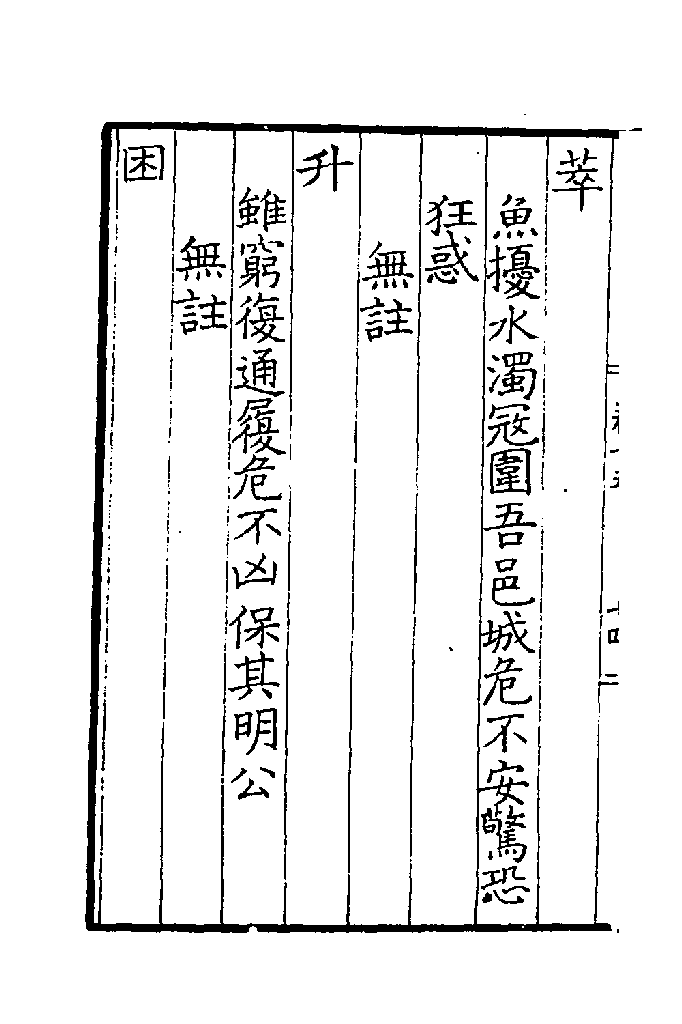 萃
魚擾水濁冦圍吾邑城危不安驚恐
狂惑
無註
升
雖窮復通履危不凶保其明公
無註
困